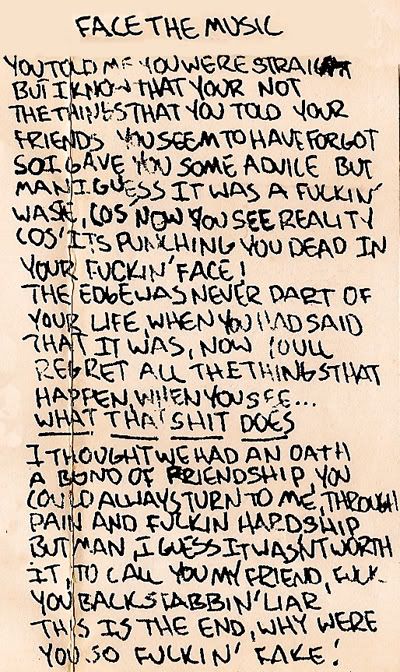 FACE THE MUSIC
YOU TOLD ME YOU WERE STRAIGHT
BUT I KNOW THAT YOUR NOT
THE THINGS THAT YOU TOLD YOUR
FRIENDS YOU SEEM TO HAVE FORGOT
SO I GAVE YOU SOME ADVICE BUT
MAN I GUESS IT WAS A FUCKIN'
WASTE, COS' NOW YOU SEE REALITY
COS' IT'S PUNCHING YOU DEAD IN
YOUR FUCKIN' FACE!
THE EDGE WAS NEVER PART OF
YOUR LIFE, WHEN YOU HAD SAID
THAT IT WAS, NOW YOULL
REGRET ALL THE THINGS THAT
HAPPEN, WHEN YOU SEE...
WHAT THAT SHIT DOES
I THOUGHT WE HAD AN OATH
A BOND OF FRIENDSHIP, YOU
COULD ALWAYS TURN TO ME, THROUGH
PAIN AND FUCKIN HARDSHIP
BUT MAN, I GUESS IT WASN'T WORTH
IT, TO CALL YOU MY FRIEND, FUCK
YOU BACKSTABBIN' LIAR
THIS IS THE END, WHY WERE
YOU SO FUCKIN' FAKE!